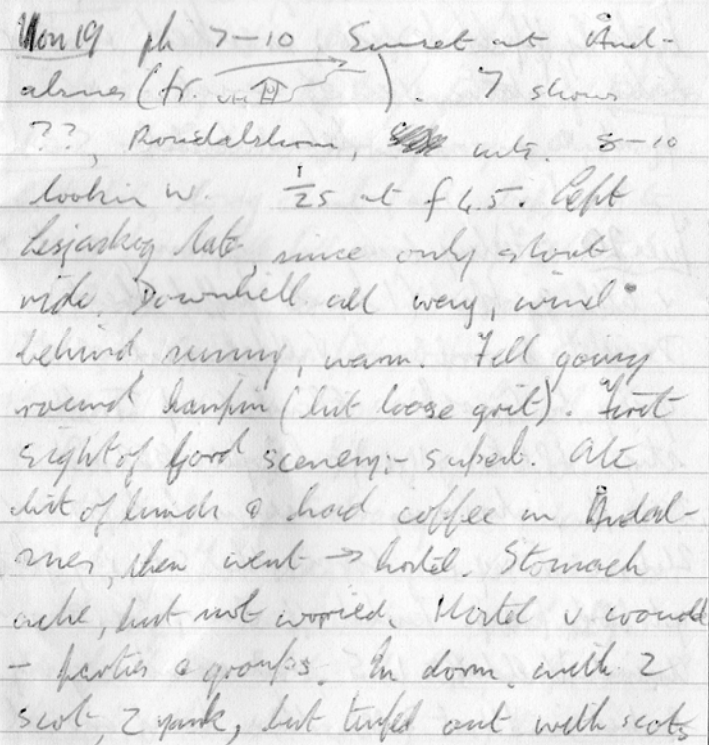 Mon 19 ph 7-10 Sunset atÅnd-
alsnes (fr. ). 7 shows
??, Romsdalshorn, mts. 8-10
lookin W. 1/25 at f 4.5. Left
Lesjaskog late, since only short
ride. Downhill all way, wind
behind, sunny, warm. Fell going
round hairpin (hit loose grit). First
sight of fjord scenery:- superb. Ate
bit of lunch & had coffee in Åndal-
snes, then went → hostel. Stomach
ache, but not worried. Hostel v. crowded
- parties & groups. In dorm. with 2
scot, 2 yank, but turfed out with scots